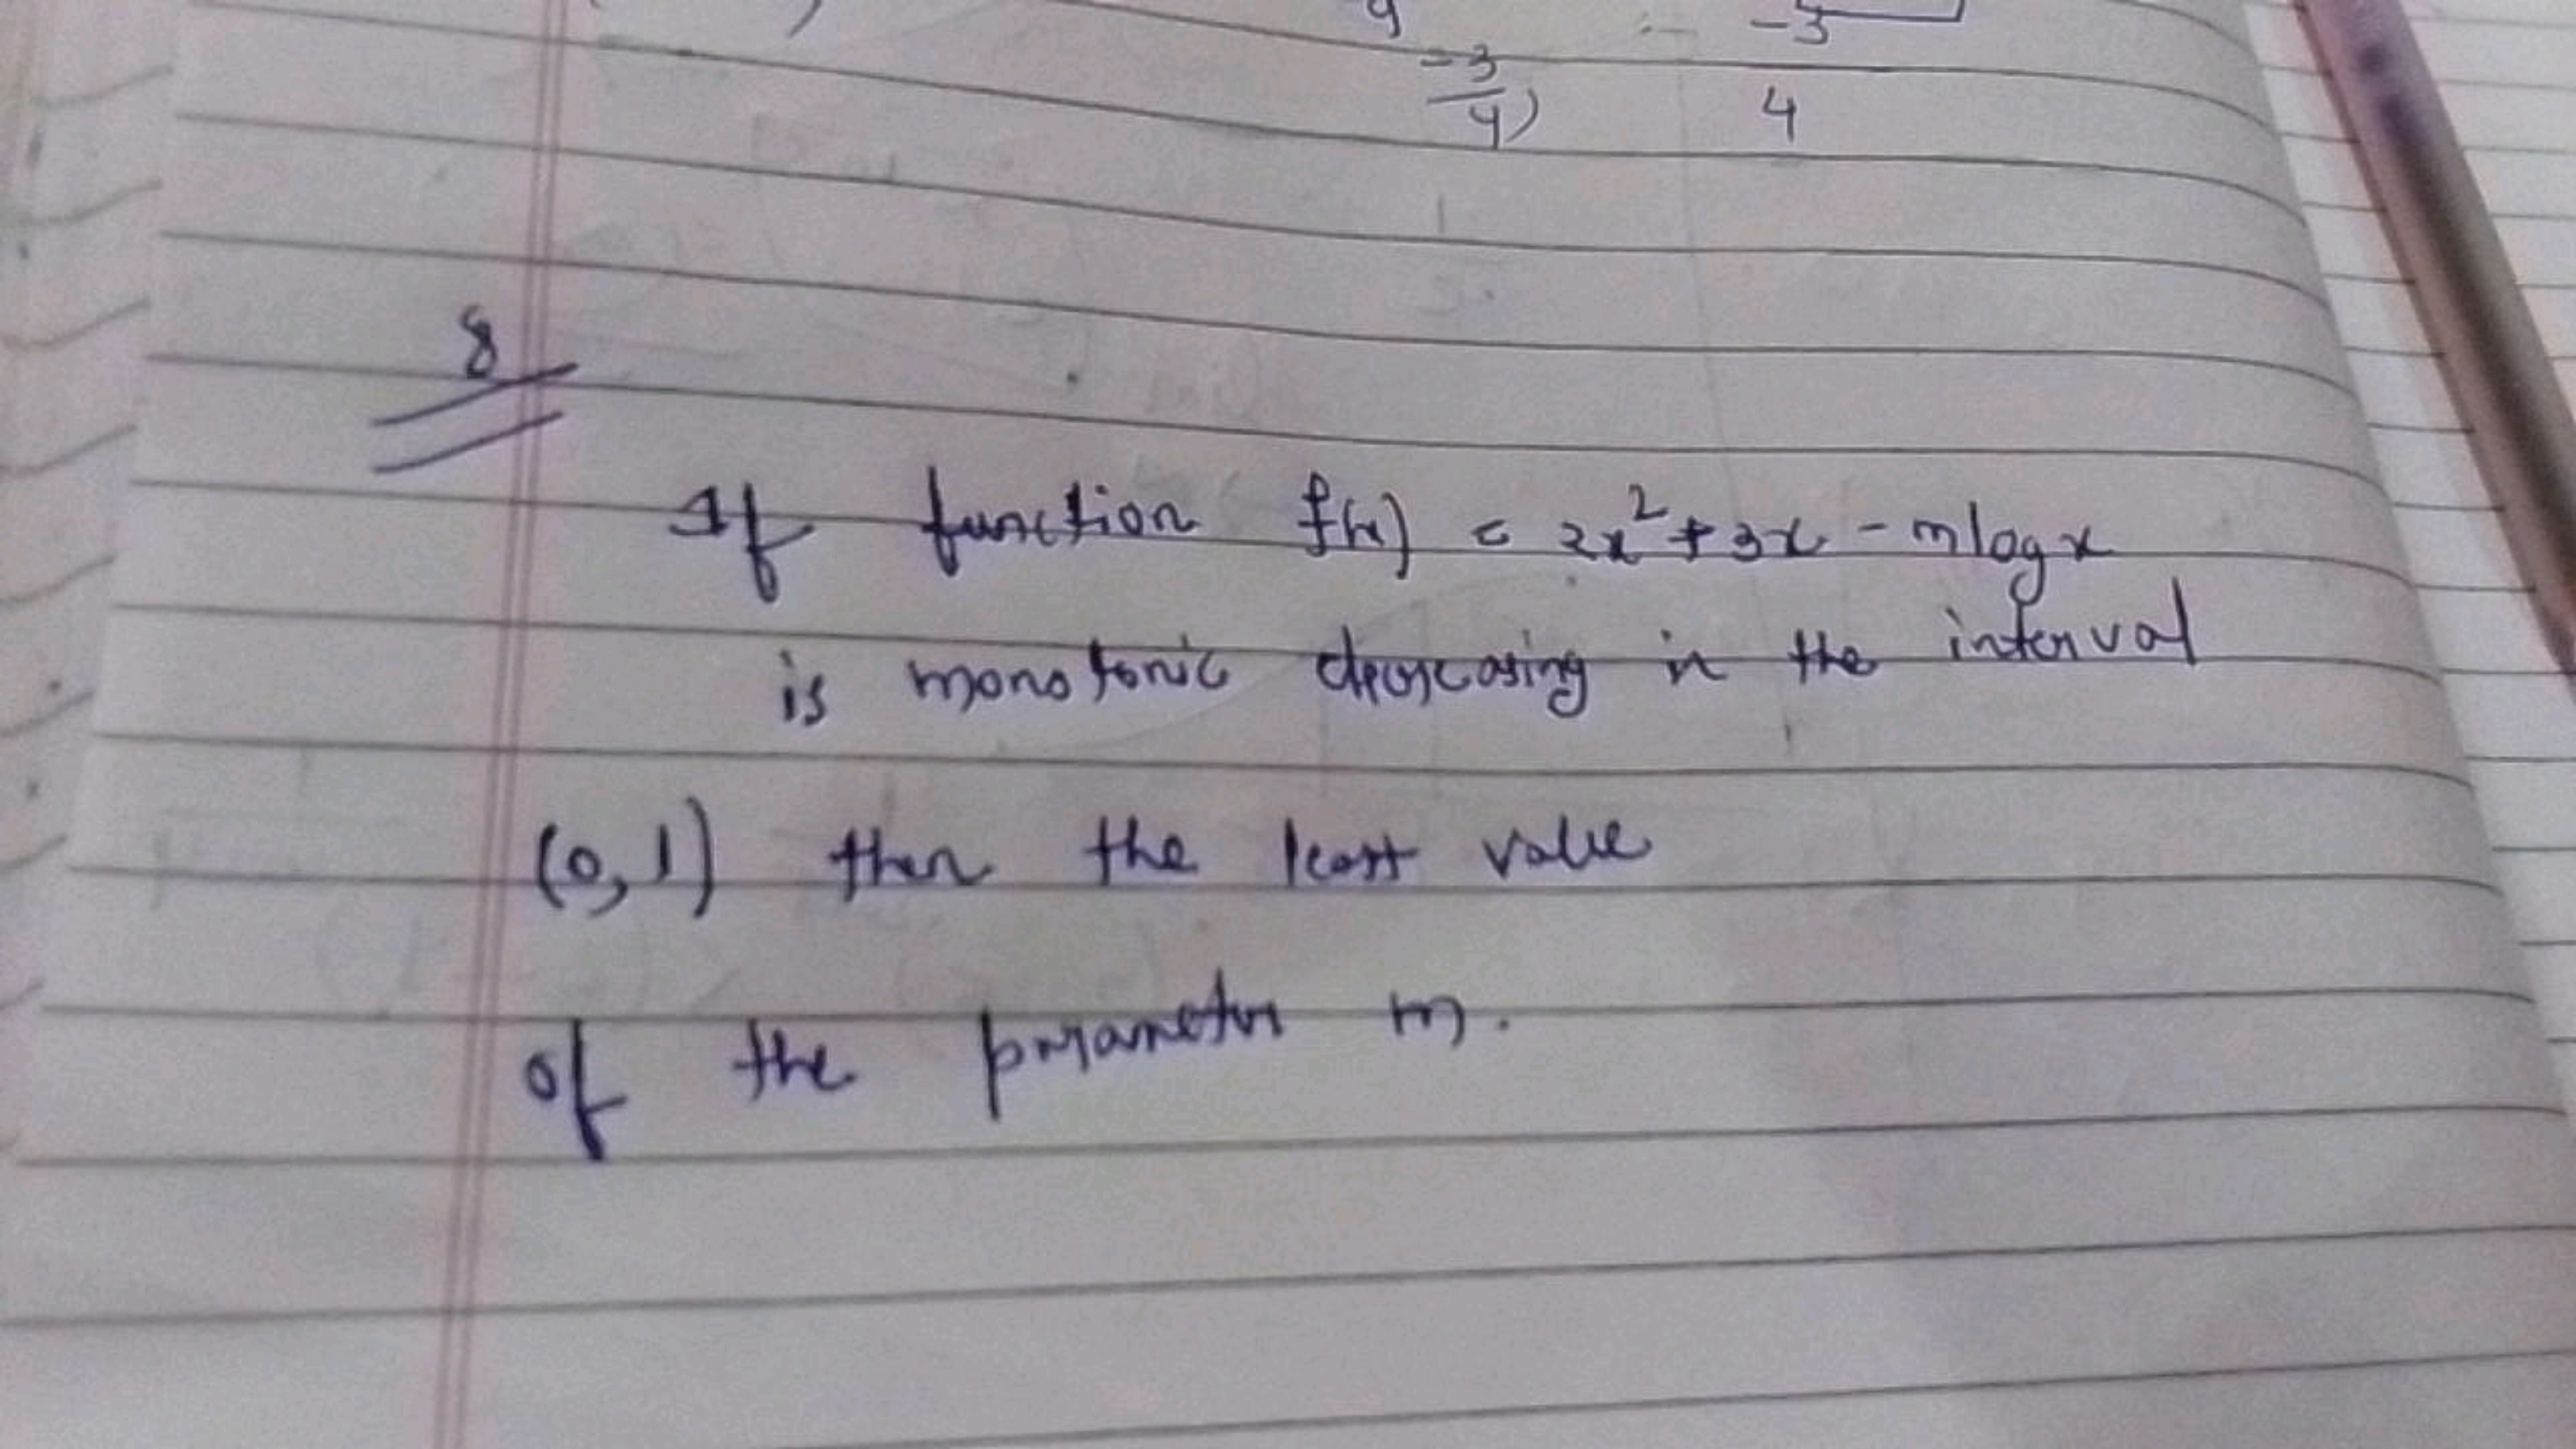 9 -3
-3/4) 4
8
If function f(x) = 2x² + 3x - m log x
is monotonic decreasing in the interval
(0, 1) then the least value
of the parameter m.